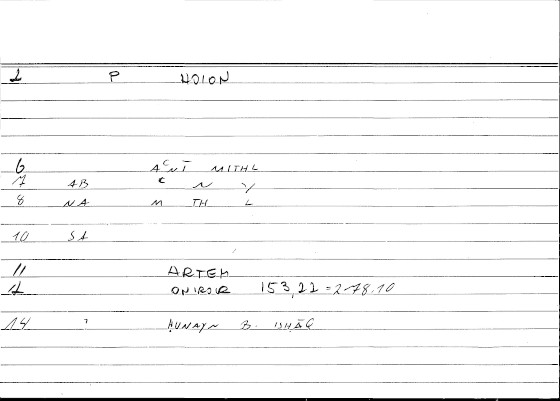 1 P HOION
6 ACNT MITHL
7 AB C N Y
8 NA M TH L
10 SA
11 ARTEM
1 ONIROIR 153,22 = 2-78.10
14 ? ḤUNAYN B. ISḤĀQ